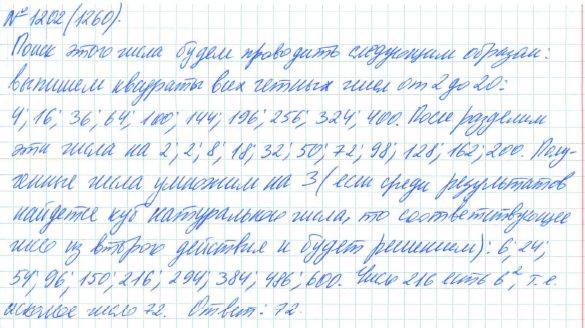 № 1202(1260).
Поиск этого числа будем проводить следующим образом:
выпишем квадраты всех четных чисел от 2 до 20:
4; 16; 36; 64; 100; 144; 196; 256; 324; 400. После разделим
эти числа на 2; 2; 8; 18; 32; 50; 72; 98; 128; 162; 200. Полу-
ченные числа умножим на 3 (если среди результатов
найдется куб натурального числа, то соответствующее
число из второго действия и будет решением): 6; 24;
54; 96; 150; 216; 294; 384; 486; 600. Число 216 есть 6², т.е.
искомое число 72. Ответ: 72.